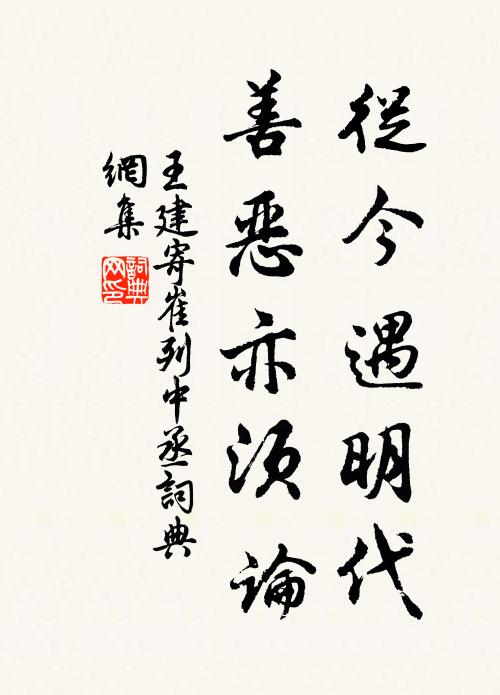 從今遇明代
善惡亦須論
王建寄崔列中丞詞典
網集
詞典
網印